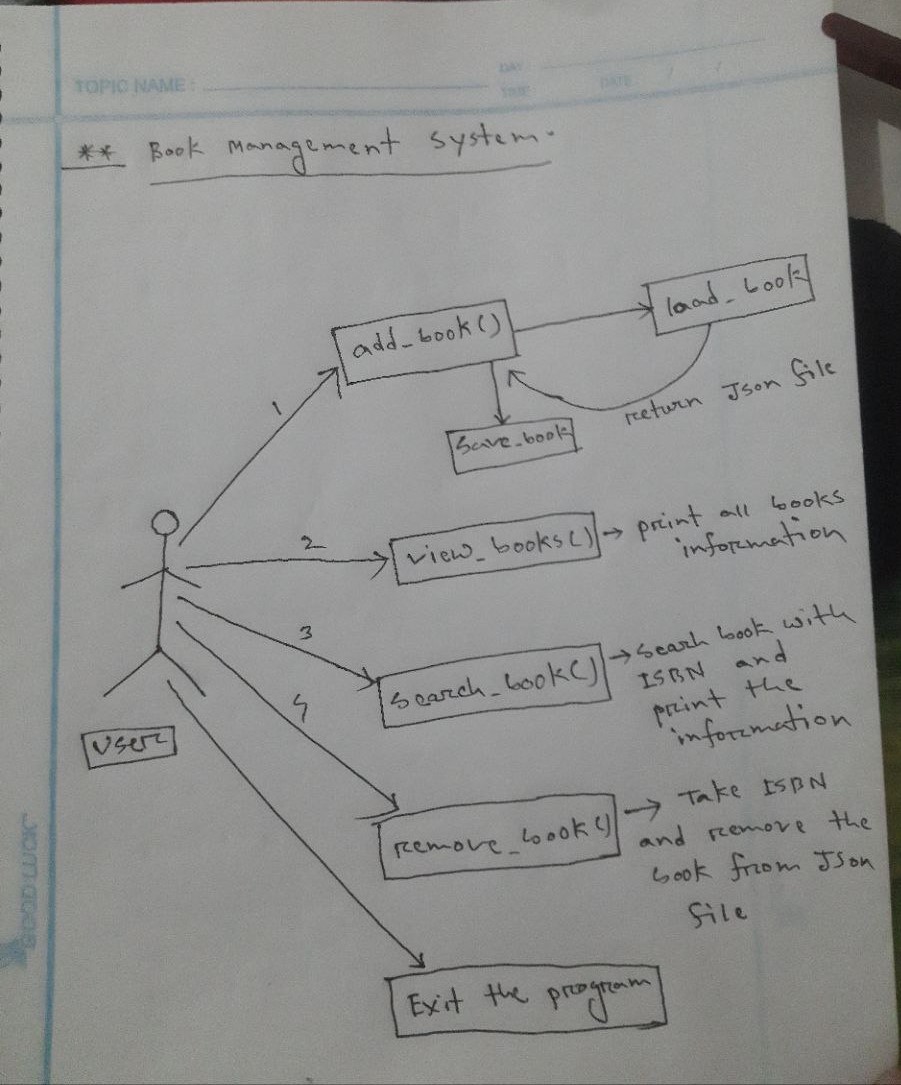 TOPIC NAME :
DAY
TIME
DATE / /
** Book Management System.
add_book()
load_book
1
return Json file
save_book
2
view_books()
→ print all books
information
3
search_book()
→ search book with
ISBN and
print the
information
4
User
remove_book()
→ Take ISBN
and remove the
book from Json
file
Exit the program
GOOD LUCK